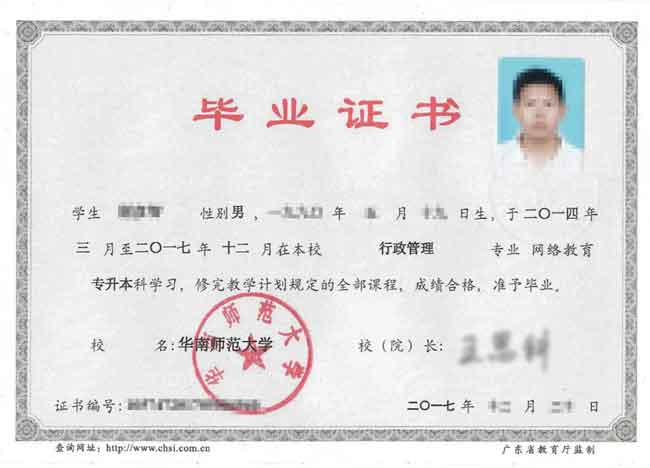 毕业证书
学生 性别男， 年 月 日生，于二〇一四年
三月至二〇一七年十二月在本校 行政管理 专业 网络教育
专升本科学习，修完教学计划规定的全部课程，成绩合格，准予毕业。
校 名：华南师范大学 校（院）长：
华南师范大学
证书编号： 二〇一七年 月 日
查询网址：http://www.chsi.com.cn 广东省教育厅监制